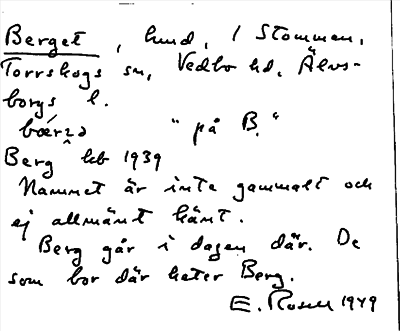 Berget, hmd, 1 Stommen,
Torrskogs sn, Vedbo hd, Älvs-
borgs l.
bærᴣə "på B."
Berg kb 1939
Namnet är inte gammalt och
ej allmänt känt.
Berg går i dagen där. De
som bor där heter Berg.
E. Rosell 1949